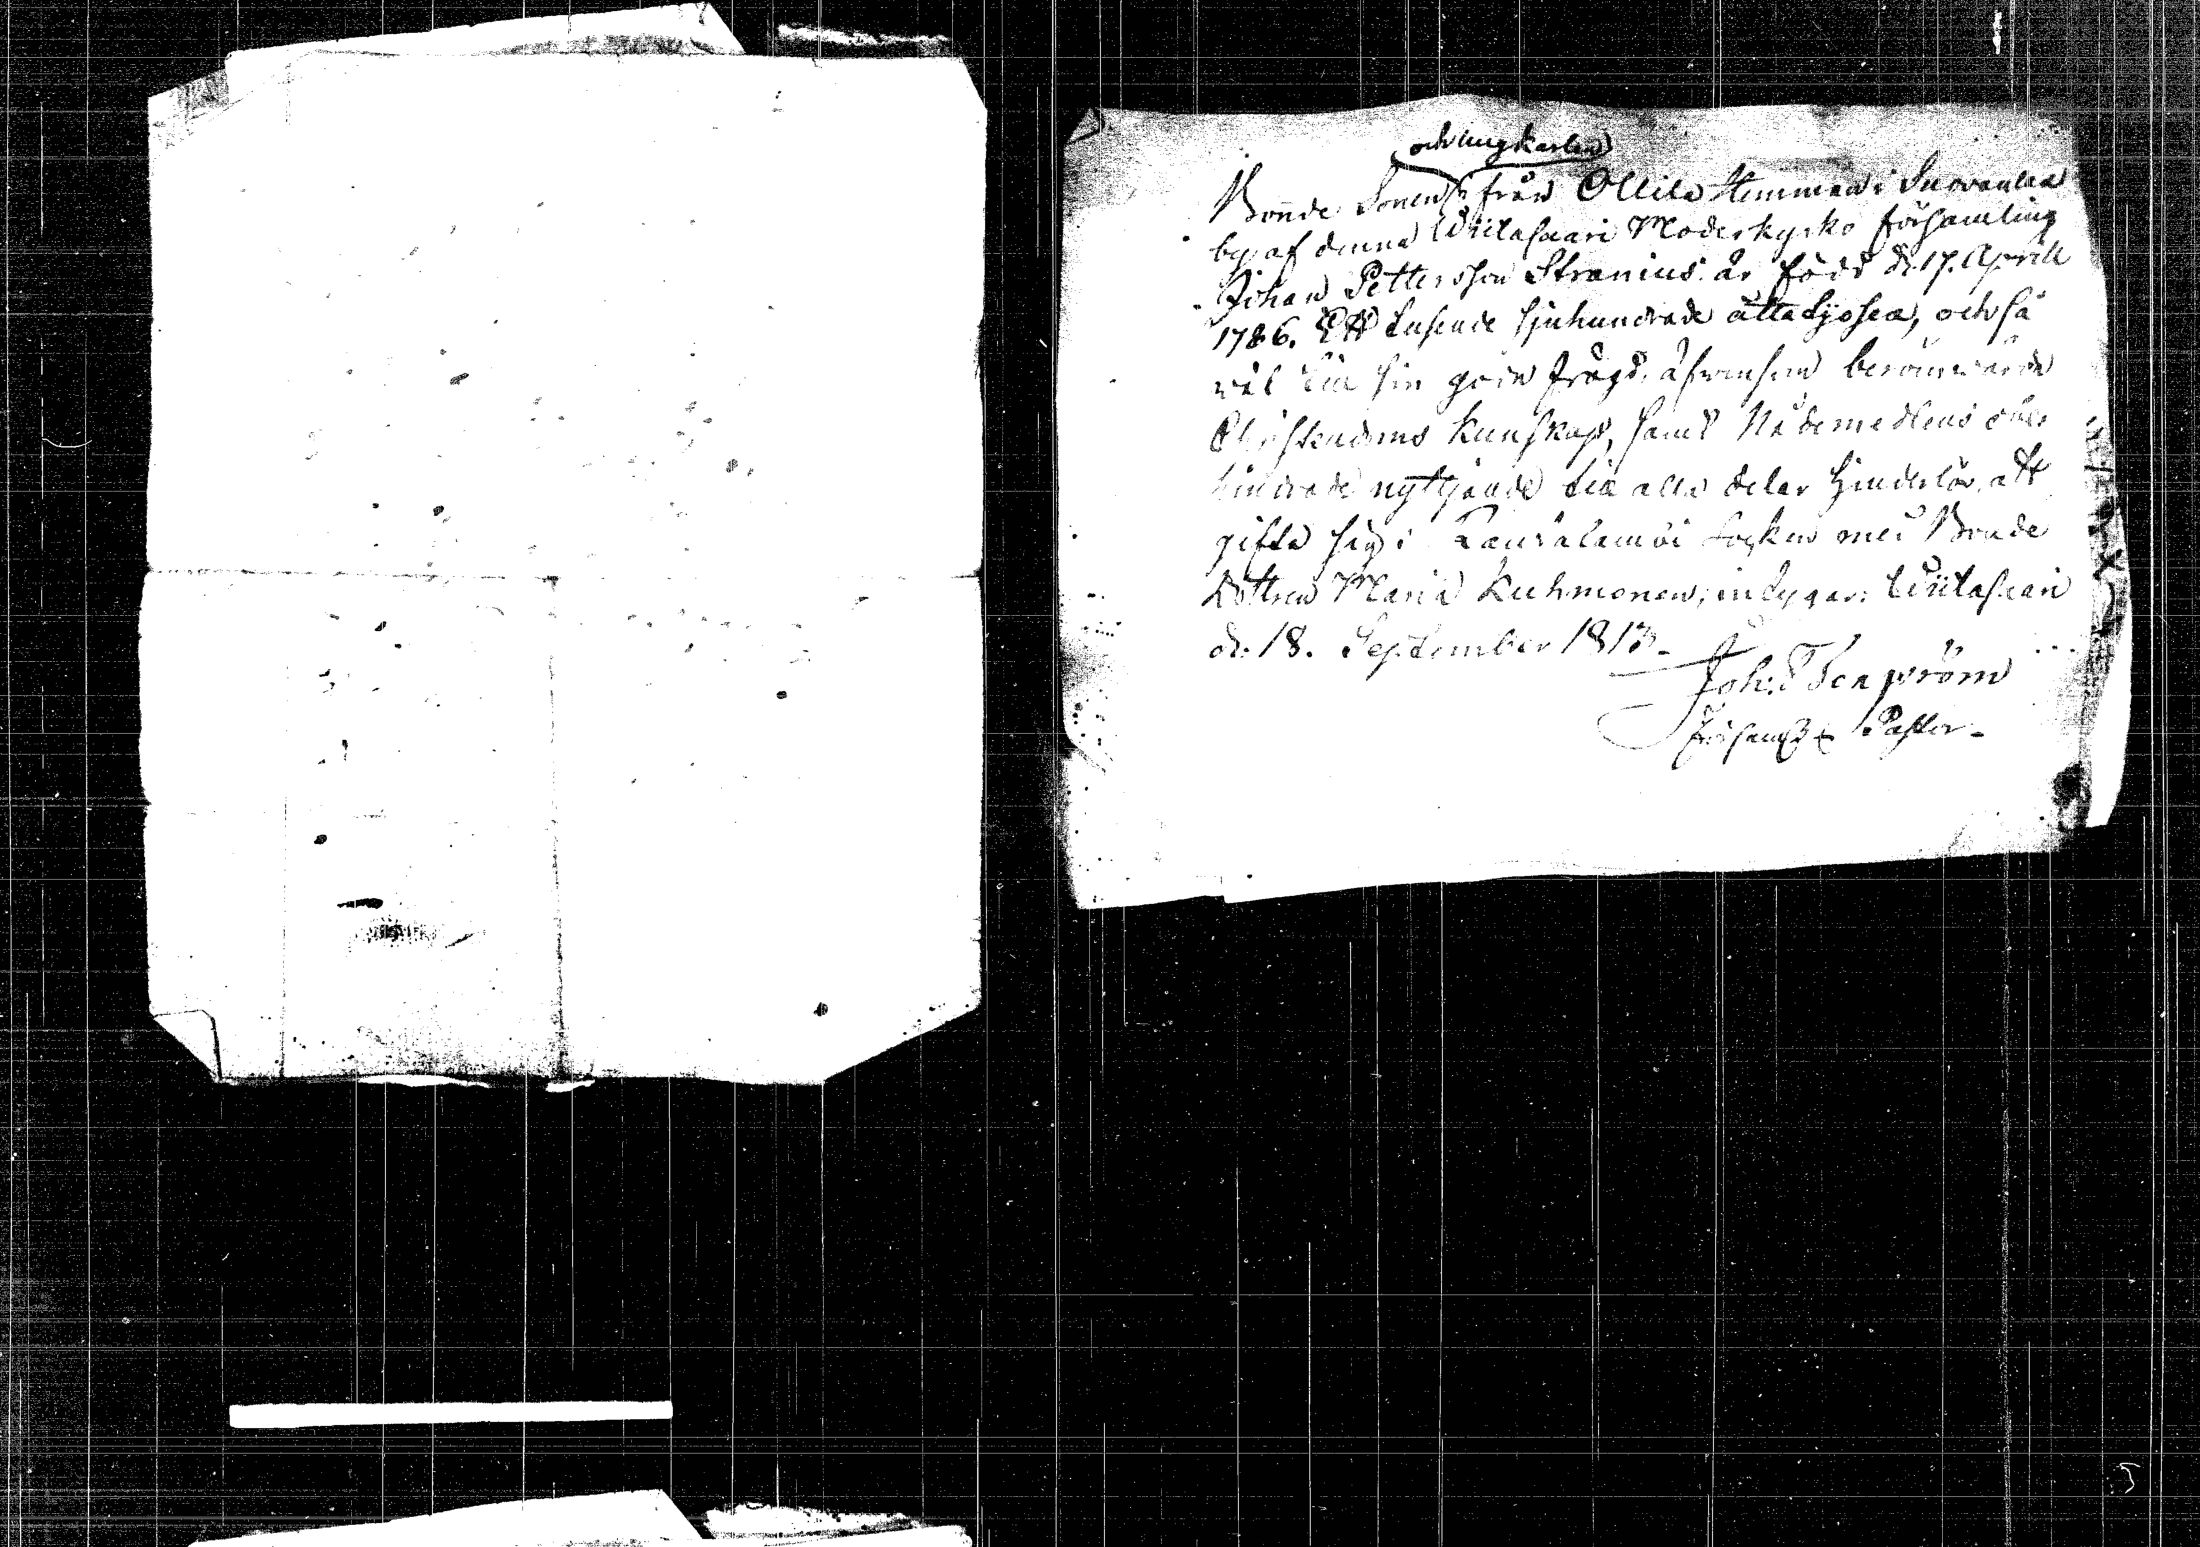 och ungkarlen
Bonde Sonen från Ollila Hemman i Suovanlax
by af denna Wiitasaari Moderkyrko församling
Johan Pettersson Stranius är född d. 17. Aprill
1786. Ett tusende sjuhundrade åttatijosex, och så
väl till sin goda frägd, åfvensom berömvärde
Christendoms Kunskap, samt Nådemedlens obe-
hindrade nyttjande till alla delar hinderlös, att
gifta sig i Rautalambi Sockn med Bonde
Dottren Maria Kuhmonen; intygar: Wiitasaari
d. 18. September 1813.
Joh:
Pastor